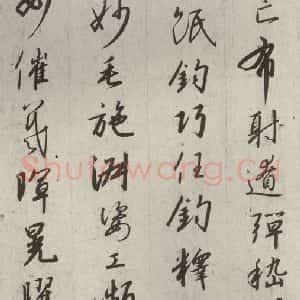 亡布射遼彈嵇
紙鈞巧任釣釋
妙毛施淑姿工頻
每催羲暉晃曜
Shufawang.cn